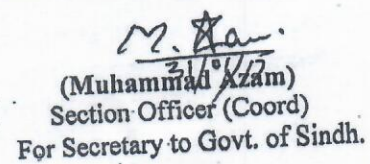 M. Azam
(Muhammad Azam)
Section Officer (Coord)
For Secretary to Govt. of Sindh.